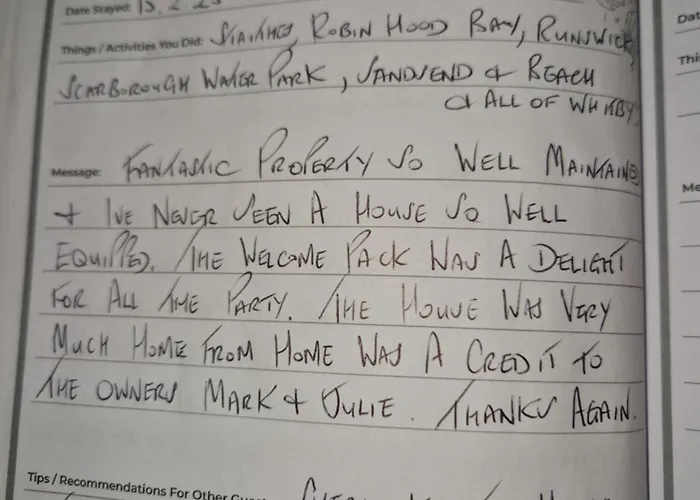 Date Stayed: 13.2.23
Things / Activities You Did: STAITHES, ROBIN HOOD BAY, RUNSWICK
SCARBOROUGH WATER PARK, SANDSEND & BEACH
& ALL OF WHITBY.
Message: FANTASTIC PROPERTY SO WELL MAINTAINED
& IVE NEVER SEEN A HOUSE SO WELL
EQUIPPED. THE WELCOME PACK WAS A DELIGHT
FOR ALL THE PARTY. THE HOUSE WAS VERY
MUCH HOME FROM HOME WAS A CREDIT TO
THE OWNERS MARK & JULIE. THANKS AGAIN.
Tips / Recommendations For Other
Dat
Thi
Me